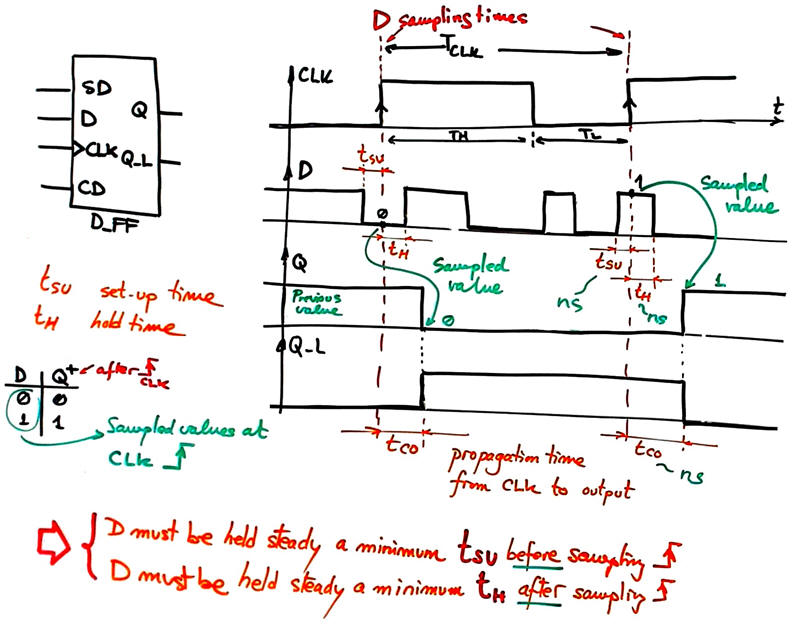 D sampling times
TCLK
CLK
t
TH
TL
SD
D
CLK
CD
Q
Q_L
D_FF
tsu
D
0
tH
Sampled value
1
Sampled value
tsu
ns
tH
~ns
Q
Previous value
0
1
Q_L
tsu set-up time
tH hold time
D Q+ after CLK
0 0
1 1
Sampled values at
CLK
tco
propagation time
from CLK to output
tco
~ns
D must be held steady a minimum tsu before sampling
D must be held steady a minimum tH after sampling